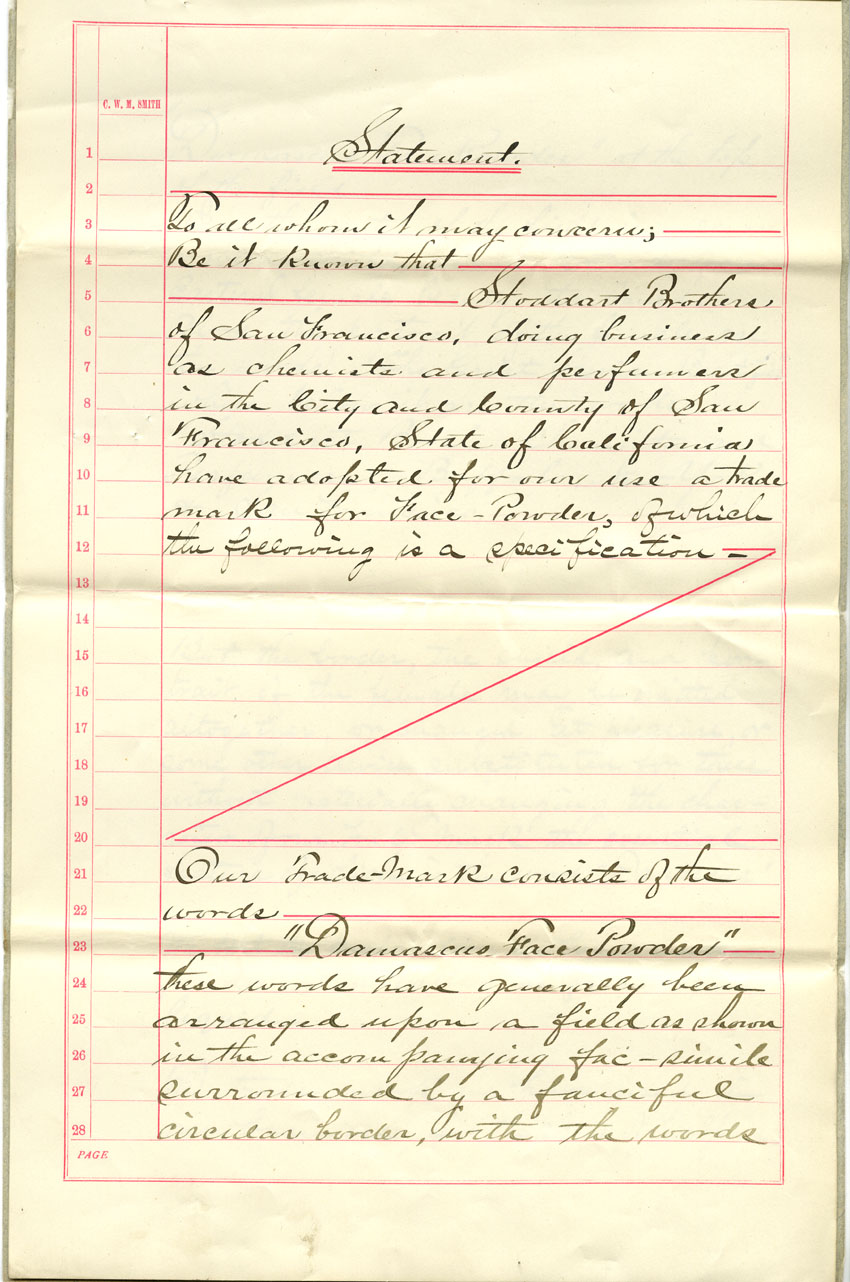 C. W. M. SMITH
1 Statement.
2
3 To all whom it may concern;
4 Be it known that
5 Stoddart Brothers
6 of San Francisco, doing business
7 as chemists and perfumers
8 in the City and County of San
9 Francisco, State of California
10 have adopted for our use a trade
11 mark for Face-Powder, of which
12 the following is a specification -
13
14
15
16
17
18
19
20
21 Our Trade-Mark consists of the
22 words
23 "Damascus Face Powder"
24 these words have generally been
25 arranged upon a field as shown
26 in the accompanying fac-simile
27 surrounded by a fanciful
28 circular border, with the words
PAGE